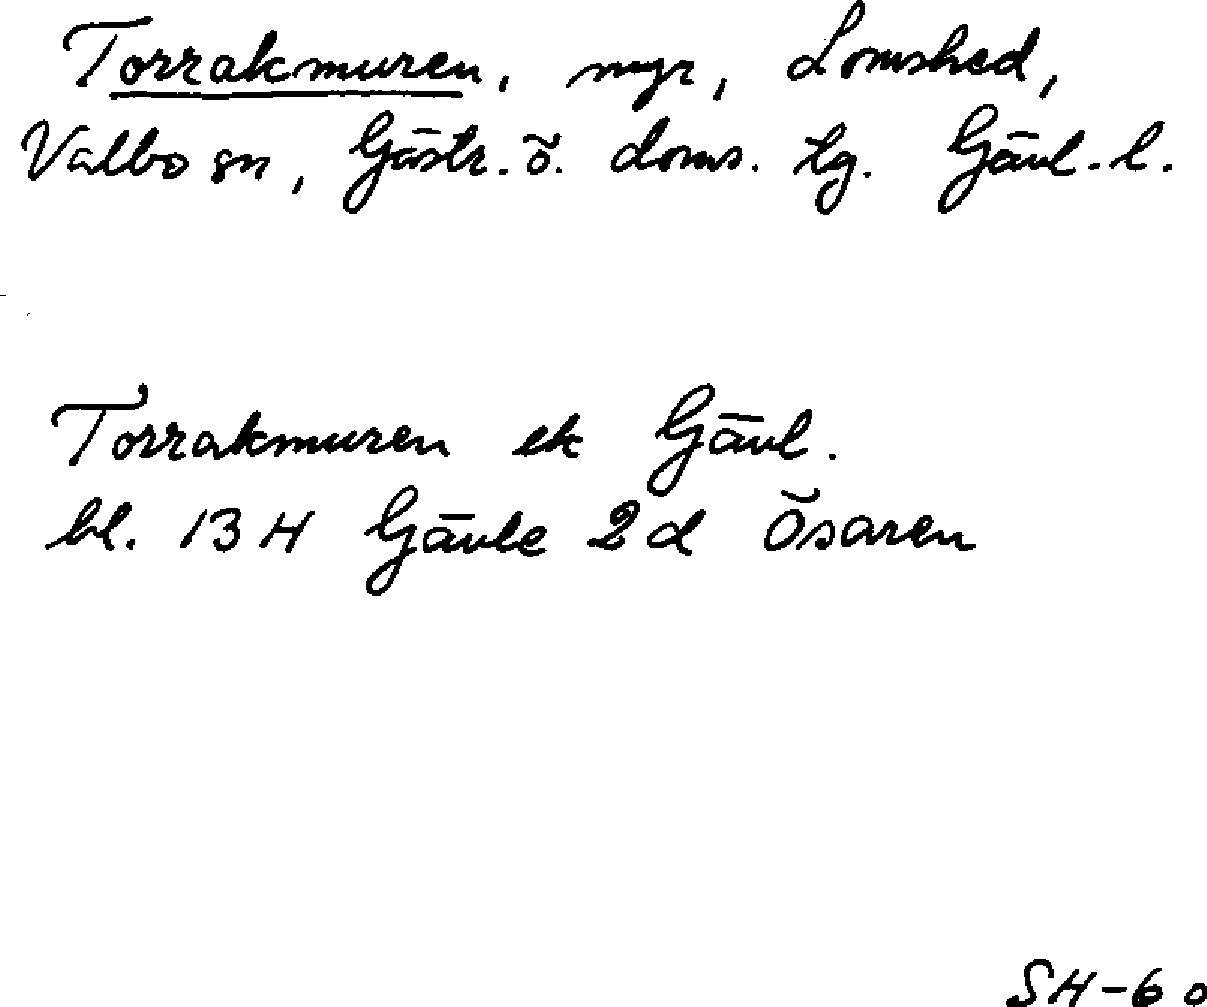 Torrakmuren, myr, Lomshed,
Valbo sn, Gästr. ö. doms. tg. Gävl. l.
Torrakmuren ek Gävl.
bl. 13 H Gävle 2 d Ösaren
SH-60